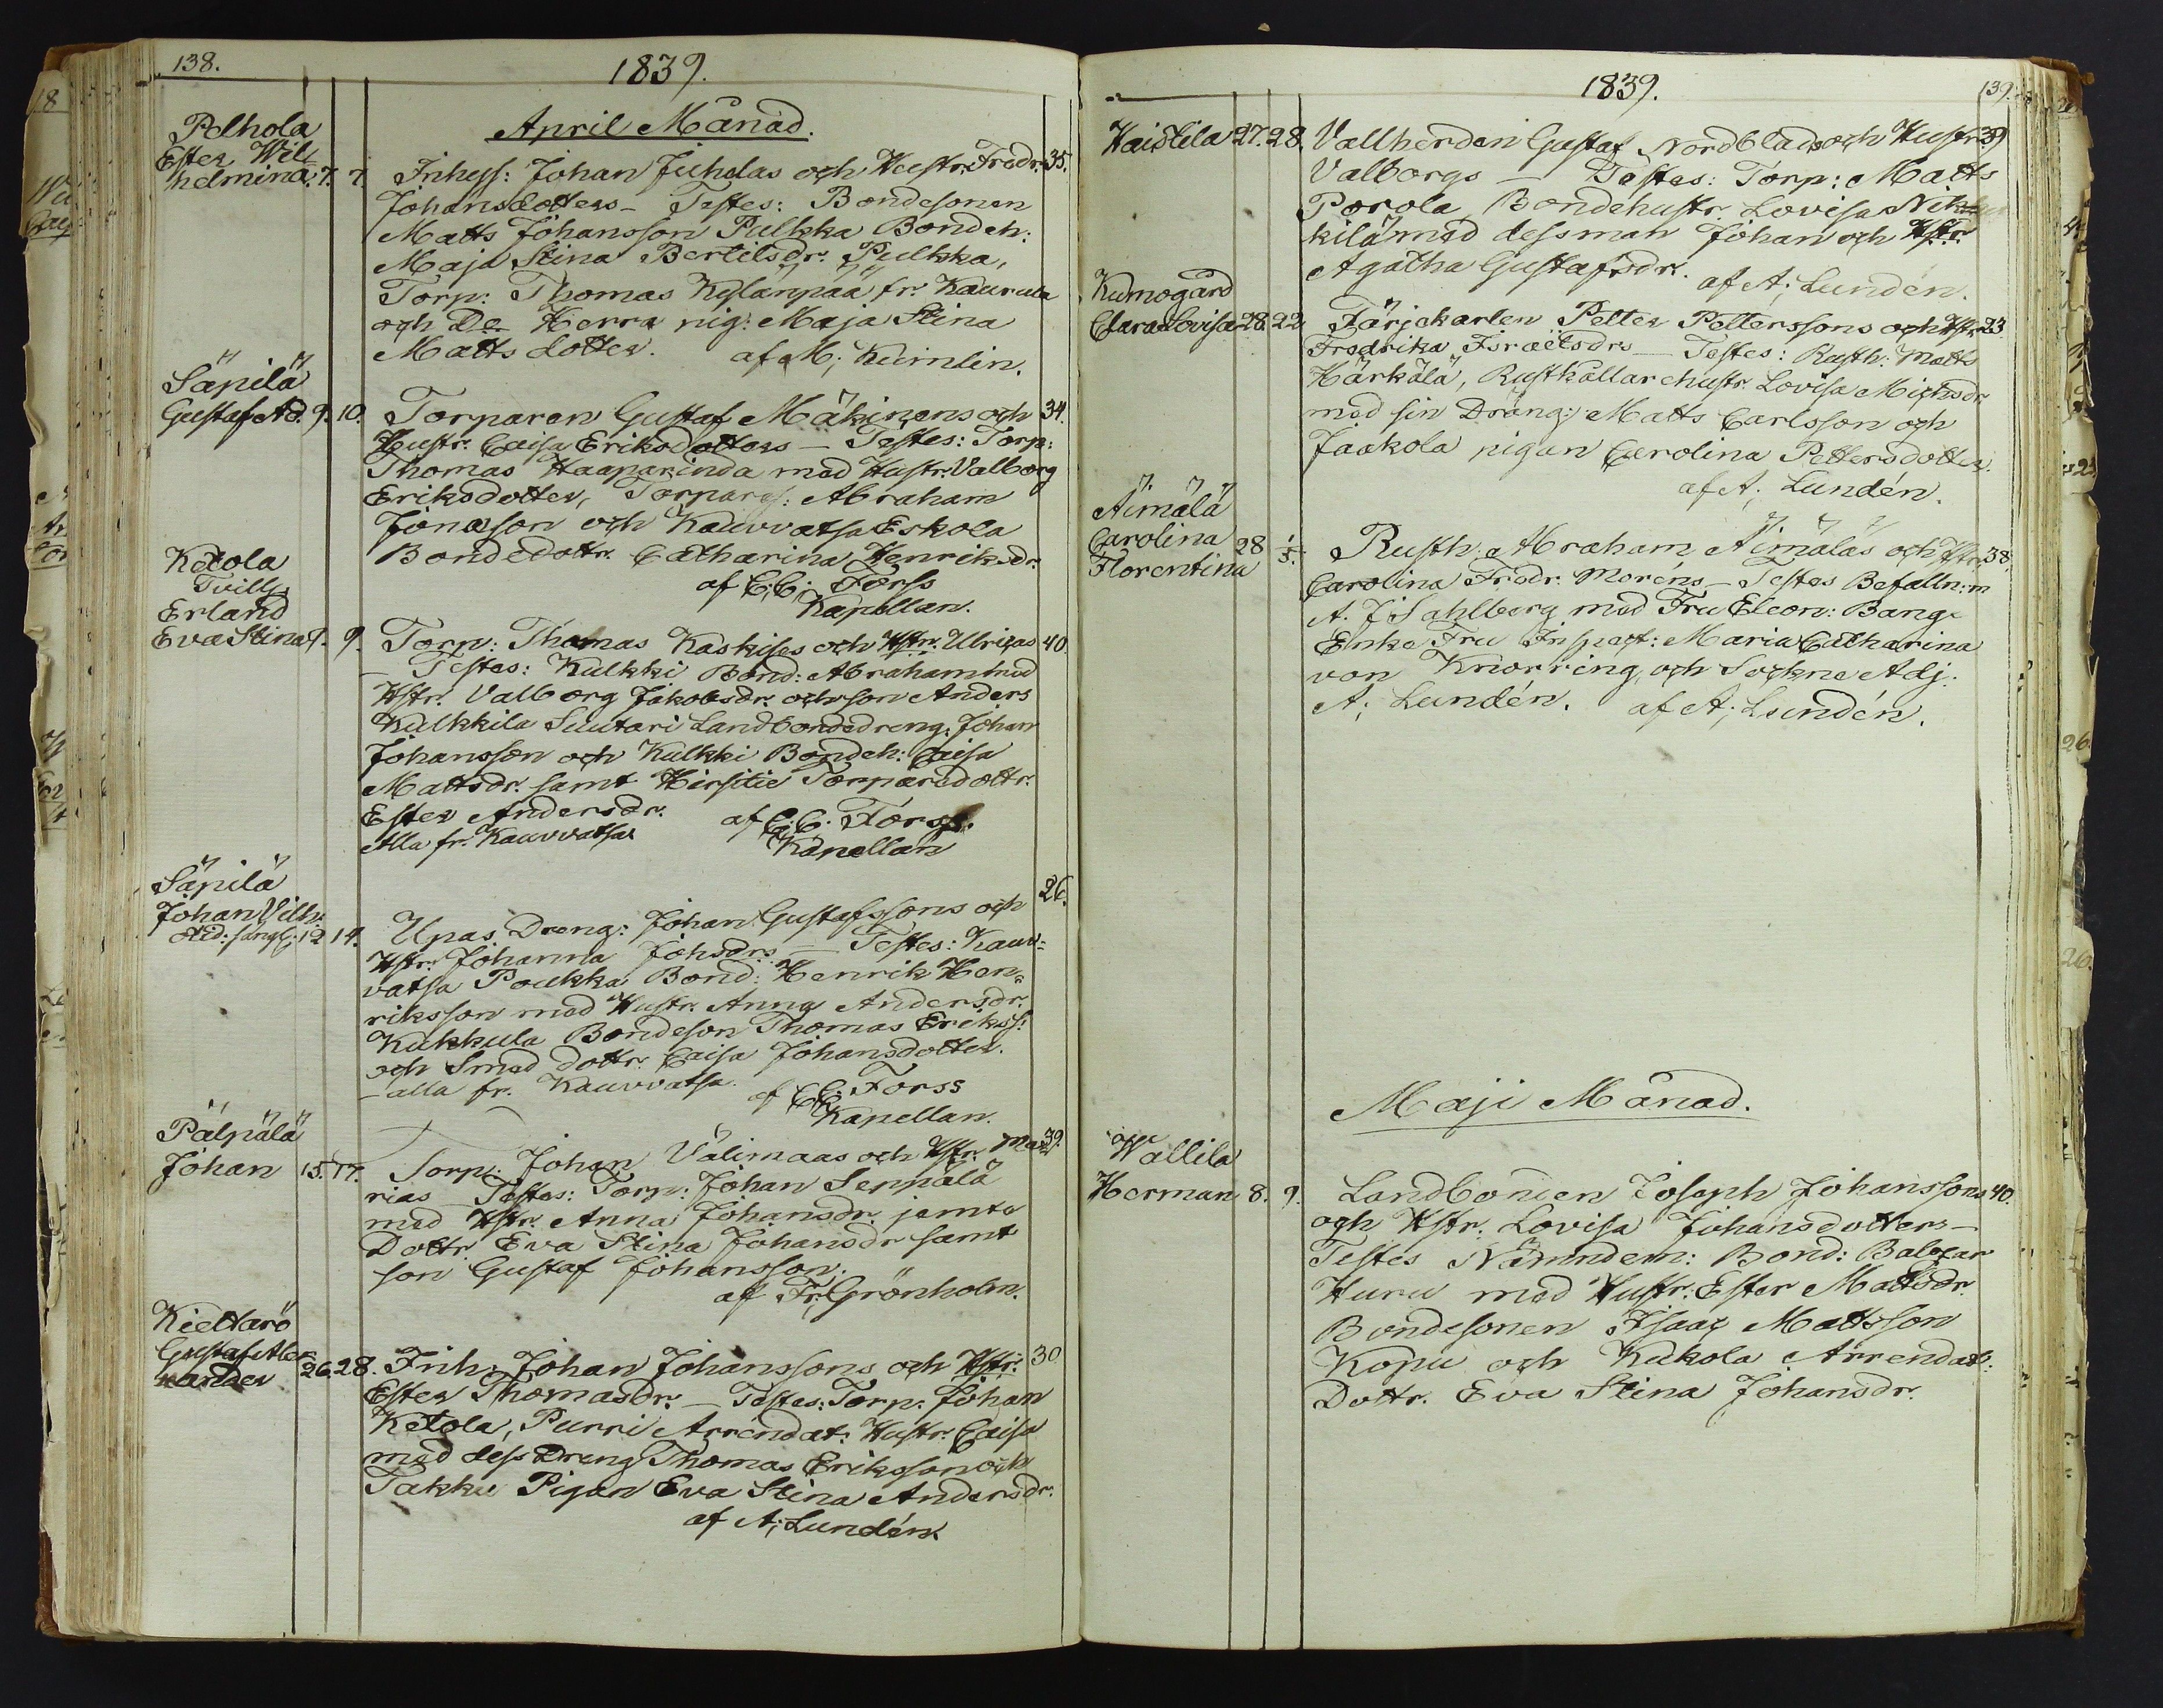 138.
1839.
April Månad.
Pelhola
Ester Wil-
helmina. 7. 7. Inhys: Johan Juholas och Hustr. Fredr: 35.
Johansdotters - Testes: Bondesonen
Matts Johansson Pulkka Bondeh:
Maja Stina Bertilsdr. Pulkka,
Torp: Thomas Kylänpää fr. Kaurula
och De Herra pig: Maja Stina
Matts dotter. af M; Kumlin.
Säpilä
Gustaf Ad. 9. 10. Torparen Gustaf Mäkinens och 34.
Hustr. Caisa Eriksdotters - Testes: Torp:
Thomas Haaparinda med Hustr. Valborg
Eriksdotter, Torpares: Abraham
Jonasson och Kauvvatsa Eskola
Bondedottr. Catharina Henriksdr.
af C; C; Forss
Kapellan.
Ketola
Tvill;
Erland
Eva Stina 9. 9. Torp: Thomas Kaskises och Hstr: Ulricas 40.
- Testes: Kulkki Bond: Abraham med
Hstr. Valborg Jakobsdr. och son Anders
Kulkkila Suutari Landbondedreng: Johan
Johansson och Kulkki Bondeh: Caisa
Mattsdr. samt Hirsitie Torparedottr.
Ester Andersdr. af C; C. Forss.
Alla fr. Kauvvatsa Kapellan
Säpilä
Johan Vilh:
12 14. Upas Dreng: Johan Gustafssons och 26.
Hstr: Johanna Johsdrs - Testes: Kauv-
vatsa Poukka Bond: Henrik Hen-
riksson med Hustr. Anna Andersdr.
Kukkula Bondeson Thomas Erikss:
och Smed dottr. Caisa Johansdotter.
- alla fr. Kauvvatsa. af C C. Forss
Kapellan.
Pälpälä
Johan 15. 17. Torp: Johan Välimaas och Hstr. Ma- 39.
rias - Testes: Torp: Johan Seppälä
med Hstr. Anna Johansdr. jemte
Dottr Eva Stina Johansdr samt
son Gustaf Johansson.
af Fr; Grönholm.
Kiettarö
Gustaf Alex-
ander 26. 28. Inh: Johan Johanssons och Hstr. 30
Ester Thomasdr. - Testes: Torp: Johan
Ketola, Purri Arrendat: Hustr. Caisa
med dess Dreng Thomas Eriksson och
Takku Pigan Eva Stina Andersdr.
af A; Lundén
1839.
139.
Haistila 27. 28. Vallherden Gustaf Nordblads och Hustr. 39
Valborgs - Testes: Torp: Matts
Porola Bondehustr. Lovisa Nik-
kilä med dess man Johan och Hstr.
Agatha Gustafsdr. af A; Lundén.
Kumogård
Clara Lovisa 28. 22 Färjekarlen Petter Petterssons och Hstr. 23
Fredrika Israelsdrs - Testes: Rusth: Matts
Härkälä, Rusthållarehustr. Lovisa Michsdr.
med sin Dräng: Matts Carlsson och
Jaakola pigan Carolina Pettersdotter.
af A; Lundén.
Äimälä
Carolina
Florentina 28 1/5. Rusth: Abraham Äimäläs och Hstr. 38.
Carolina Fredr. Moréns - Testes Befalln:m
A. J Sahlberg med Fru Eleon: Bange
Enke Fru Inspect: Maria Catharina
von Knorring, och Sockne Adj.
A; Lundén. af A; Lundén.
Maji Månad.
Wallila
Herman 8. 9. Landbonden Joseph Johanssons 40.
och Hstr. Lovisa Johansdotters -
Testes Nämndem: Bond: Balzar
Huru med Hustr: Ester Mattsdr.
Bondesonen Isaac Mattsson
Kopu och Kukola Arrendat:
Dottr. Eva Stina Johansdr.